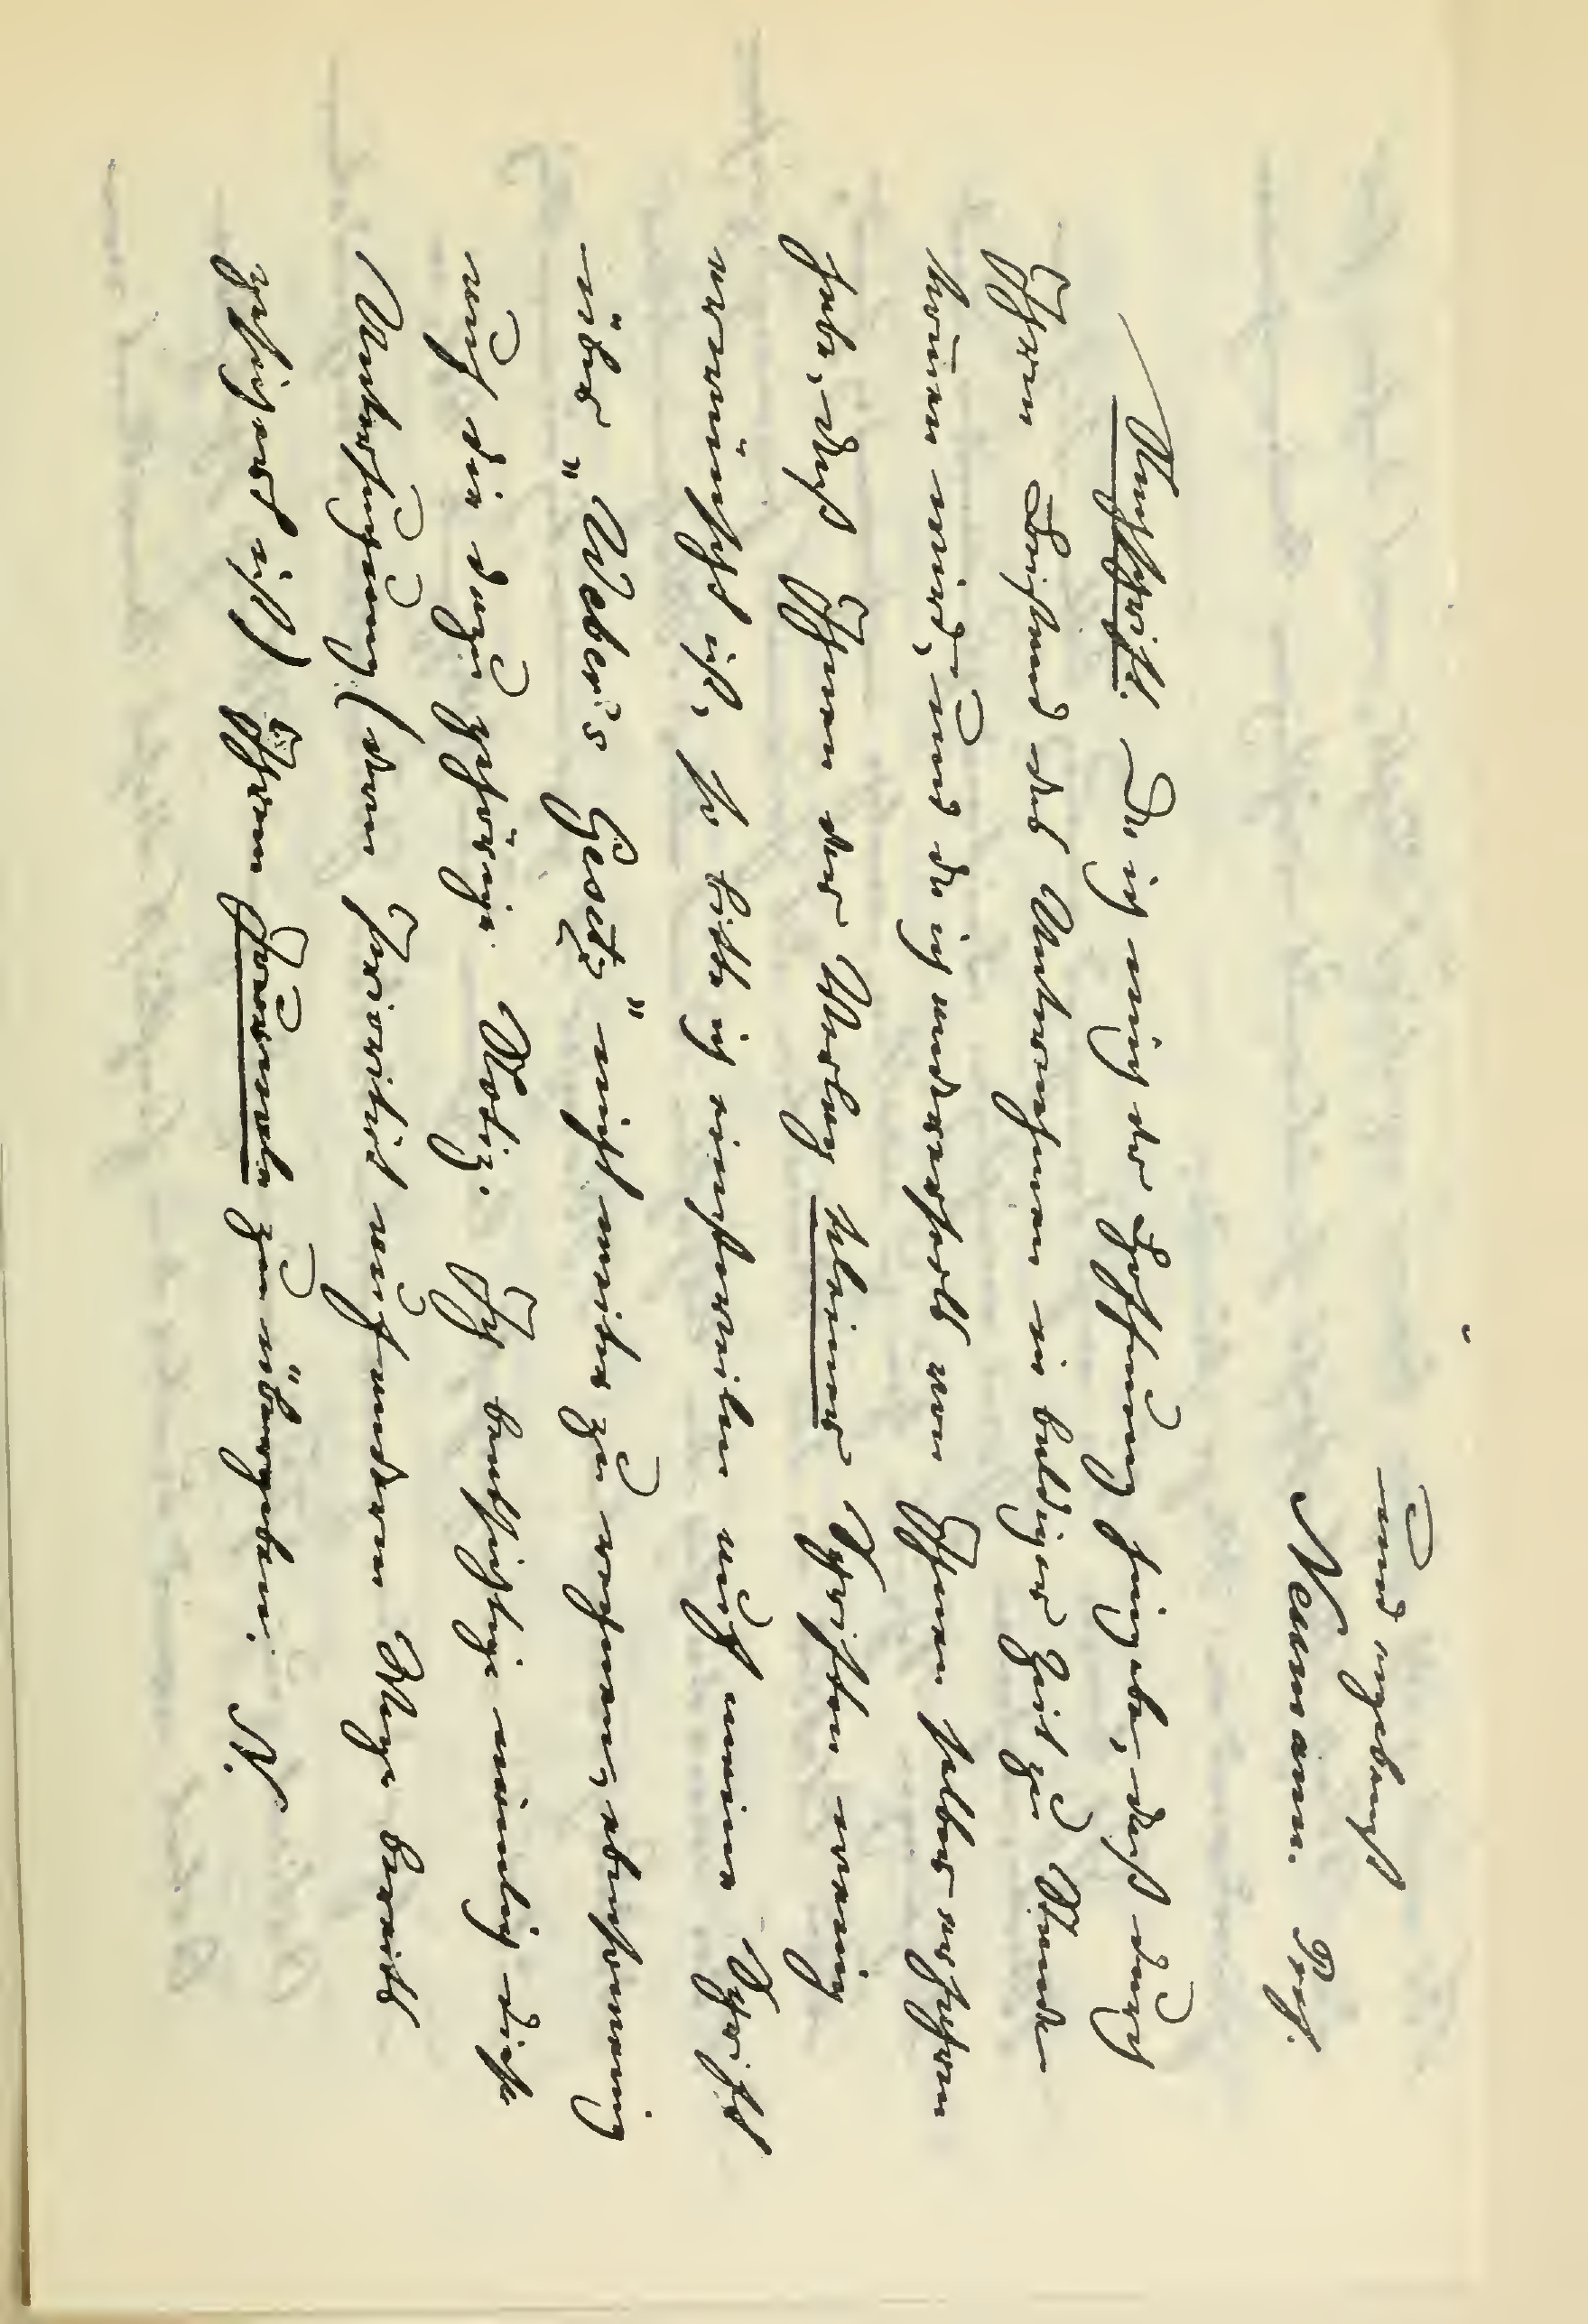 und ergebenst
Neumann. Prof.
Nachschrift. Da ich mich der Hoffnung hingebe, daß durch
Ihren Beistand das Unternehmen in baldiger Zeit zu Stande
kom̅en wird, und da ich andrerseits von Ihnen selber erfahren
habe, daß Ihnen der Verlag kleiner Schriften wenig
erwünscht ist, so bitte ich einstweilen auf meine Schrift
über „Weber's Gesetz" nicht weiter zu achten, ebensowenig
auf die dazu gehörige Notiz. Ich beabsichtige nämlich diese
Untersuchung (deren Priorität auf anderem Wege bereits
gesichert ist) Ihrem Journale zu übergeben. N.